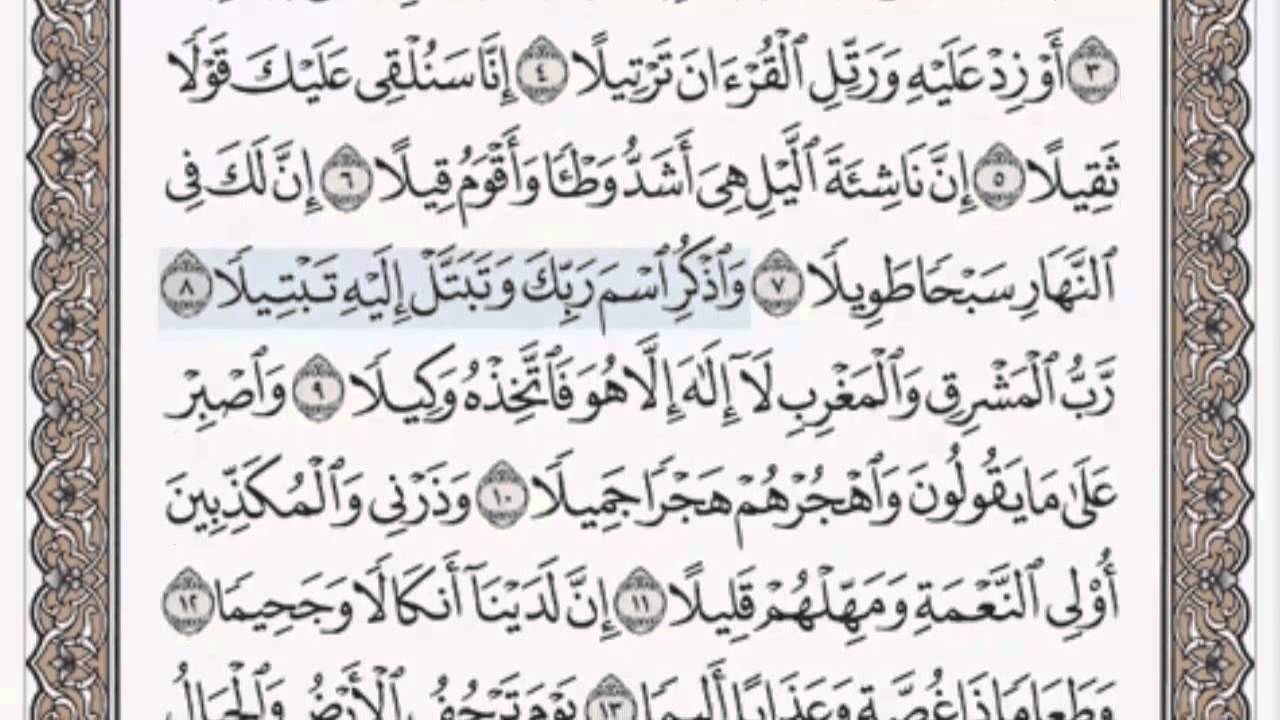 ٣ أَوْ زِدْ عَلَيْهِ وَرَتِّلِ ٱلْقُرْءَانَ تَرْتِيلًا ٤ إِنَّا سَنُلْقِى عَلَيْكَ قَوْلًا
ثَقِيلًا ٥ إِنَّ نَاشِئَةَ ٱلَّيْلِ هِىَ أَشَدُّ وَطْـًٔا وَأَقْوَمُ قِيلًا ٦ إِنَّ لَكَ فِى
ٱلنَّهَارِ سَبْحًا طَوِيلًا ٧ وَٱذْكُرِ ٱسْمَ رَبِّكَ وَتَبَتَّلْ إِلَيْهِ تَبْتِيلًا ٨
رَّبُّ ٱلْمَشْرِقِ وَٱلْمَغْرِبِ لَآ إِلَٰهَ إِلَّا هُوَ فَٱتَّخِذْهُ وَكِيلًا ٩ وَٱصْبِرْ
عَلَىٰ مَا يَقُولُونَ وَٱهْجُرْهُمْ هَجْرًا جَمِيلًا ١٠ وَذَرْنِى وَٱلْمُكَذِّبِينَ
أُو۟لِى ٱلنَّعْمَةِ وَمَهِّلْهُمْ قَلِيلًا ١١ إِنَّ لَدَيْنَآ أَنكَالًا وَجَحِيمًا ١٢
وَطَعَامًا ذَا غُصَّةٍ وَعَذَابًا أَلِيمًا ١٣ يَوْمَ تَرْجُفُ ٱلْأَرْضُ وَٱلْجِبَالُ